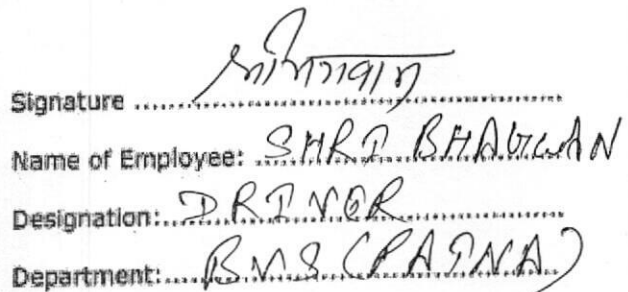 Signature श्रीभगवान
Name of Employee: SHRI BHAGWAN
Designation: DRIVER
Department: BMS (PATNA)